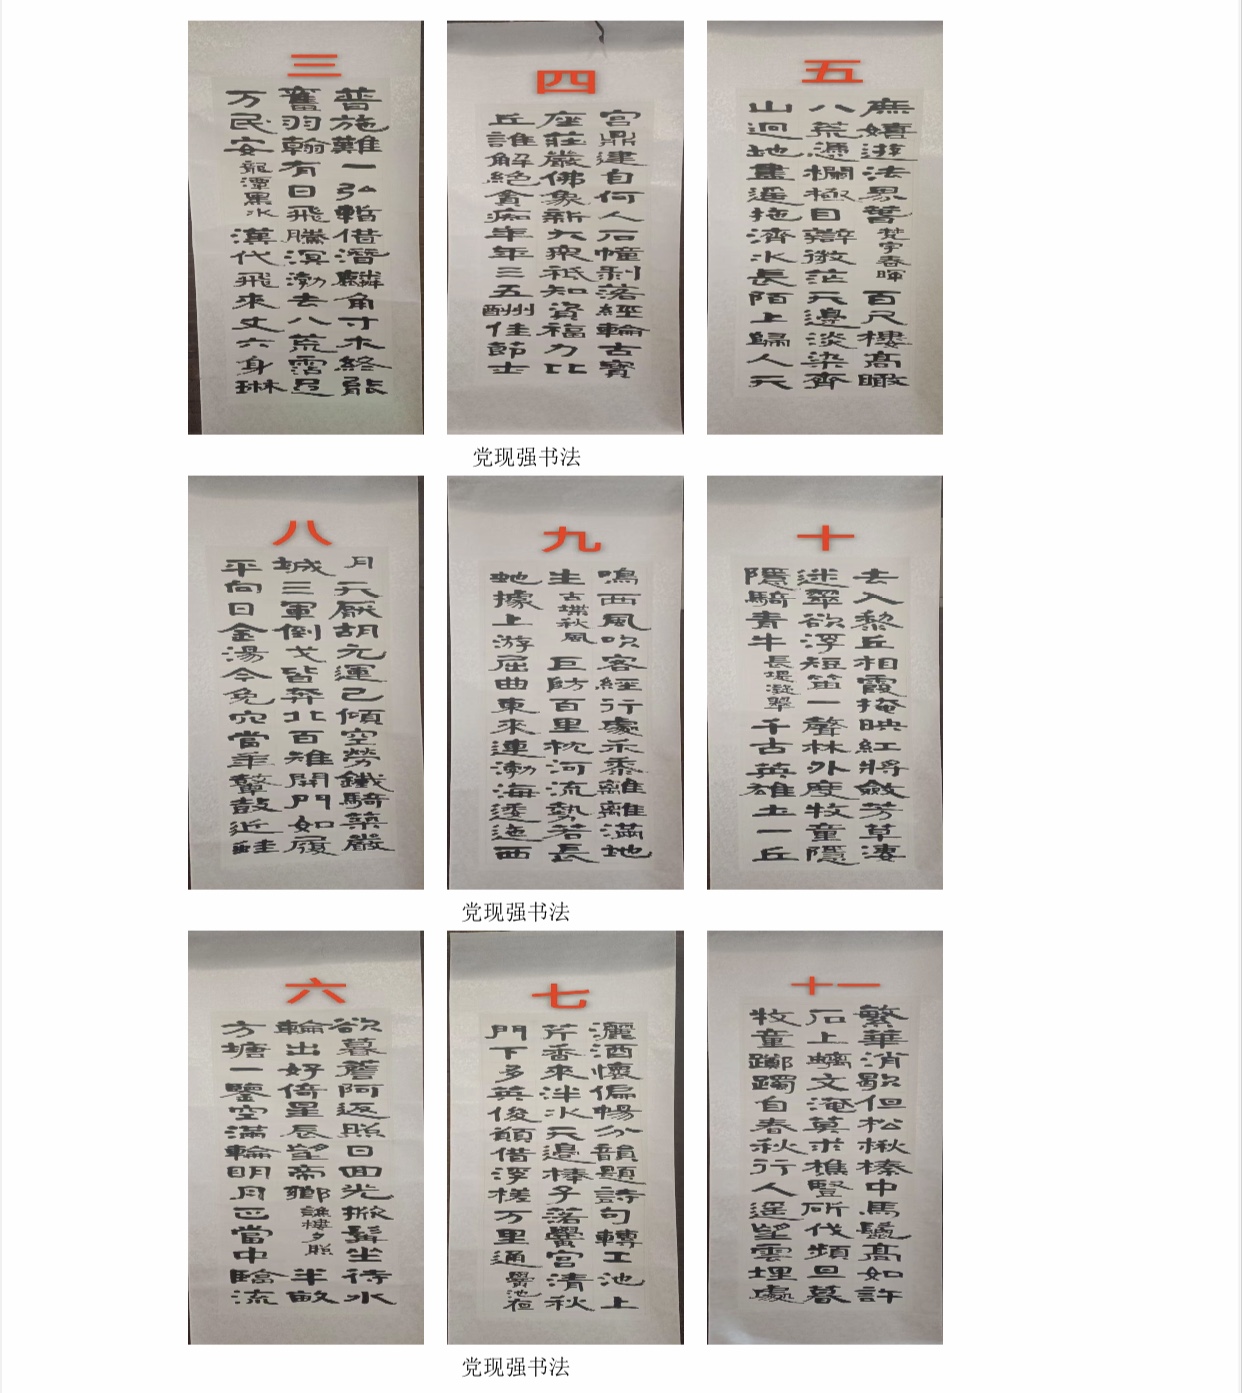 三
普施難一弘䡖借潛麟角寸木終能
奮羽翰有日飛騰溟渤去八荒霑足
万民安龍潭黑水漢代飛來丈六身琳
四
宮鼎建自何人石幢剝落經輪古寶
座莊嚴佛象新大衆祇知資福力比
丘誰解絕貪痴年年三五酬佳節士
五
廡嬉遊法界誓梵宇春暉百尺樓高瞰
八荒憑欄極目辯微茫天邊淡染齊
山迥地畫遥拖濟水長陌上歸人天
党现强书法
八
月天厭胡元運已傾空勞鐵騎築嚴
城三軍倒戈皆奔北百雉開門如履
平向日金湯今免穴當年鼙鼓近
九
鳴西風吹客經行處禾黍離離滿地
生古堞秋風巨防百里枕河流勢若長
虵據上游屈曲東來連渤海逶迤西
十
去入黎丘相霞掩映紅將斂芳草淒
迷翠欲浮短笛一聲林外度牧童隱
隱騎青牛長堤凝翠千古英雄土一丘
党现强书法
六
欲暮簷阿返照日回光掀髯坐待水
輪出好倚星辰望帝鄉譙樓夕照半畝
方塘一鑒空滿輪明月正當中臨流
七
灑酒懷偏暢分韻題詩句轉工池上
芹香來泮水天邊桂子落黌宮清秋
門下多英俊顛借浮槎万里通黌池夜
十一
繁華消歇但松楸榛中馬鬣高如許
石上螭文淹莫求樵豎斫伐頻旦暮
牧童躑躅自春秋行人遥望雲埋處
党现强书法